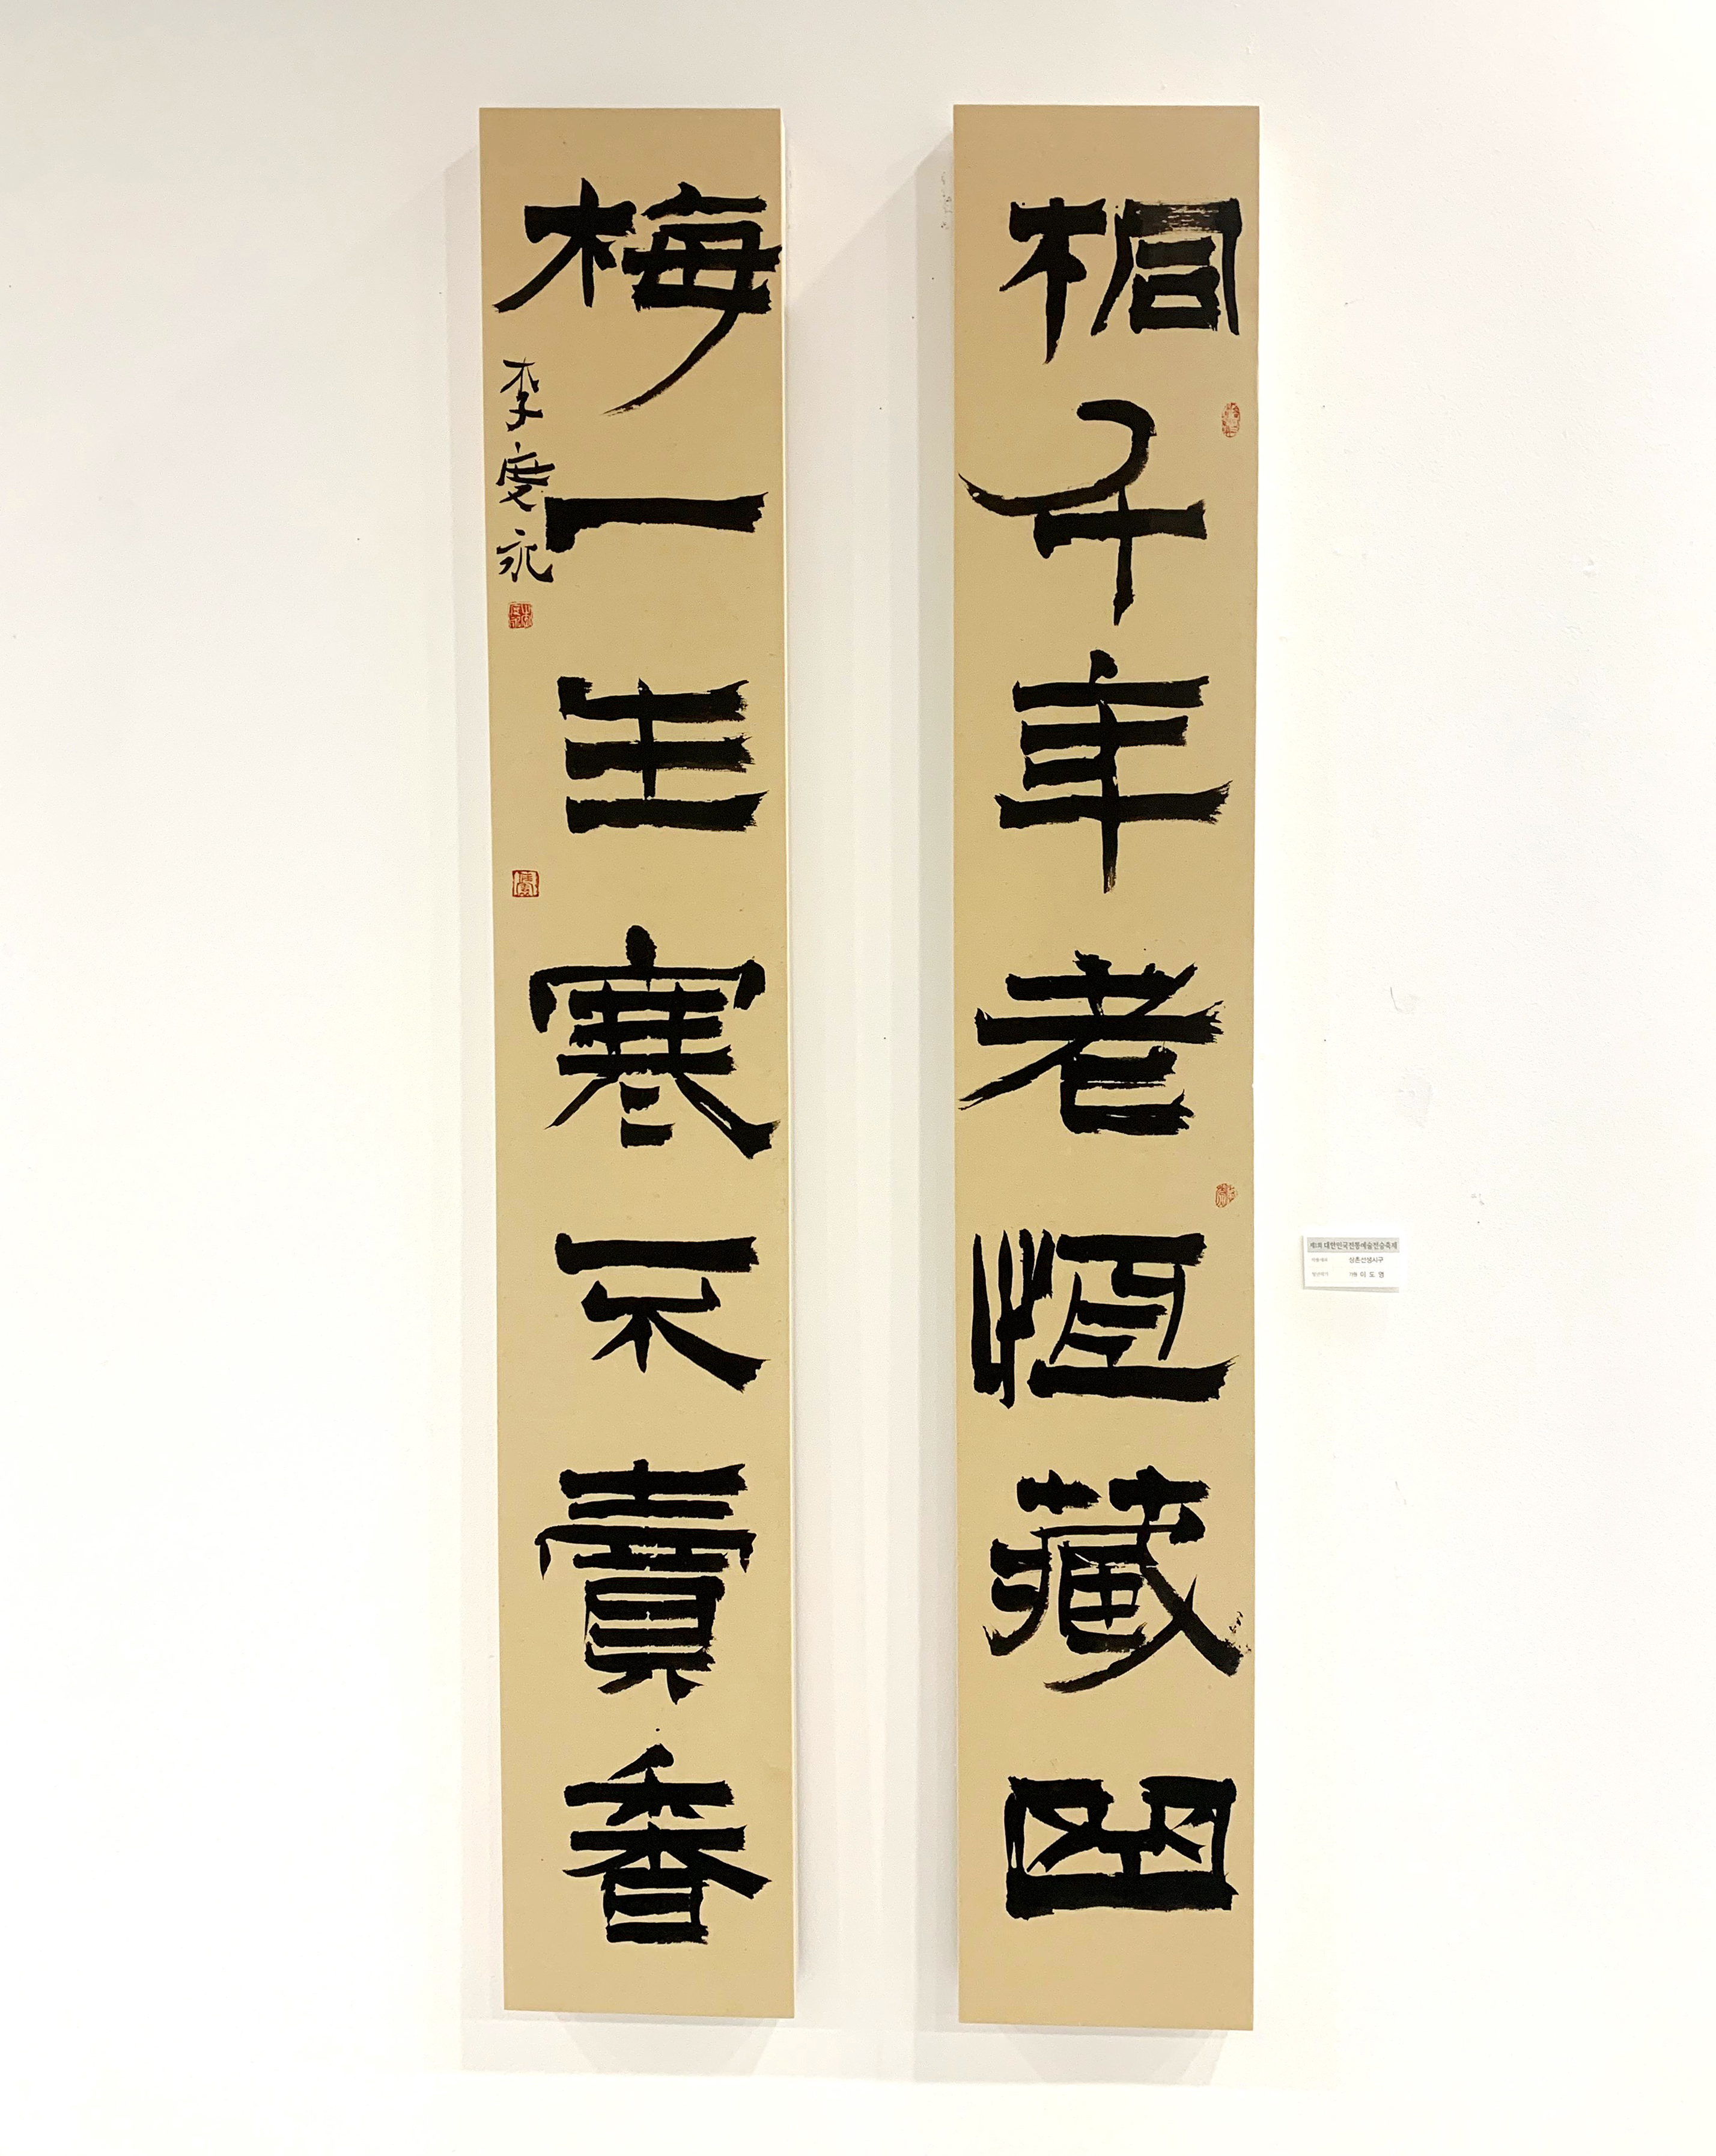 桐千年老恆藏曲
梅一生寒不賣香
李度永
대한민국전통예술전승축제
상촌선생시구
이 도 영